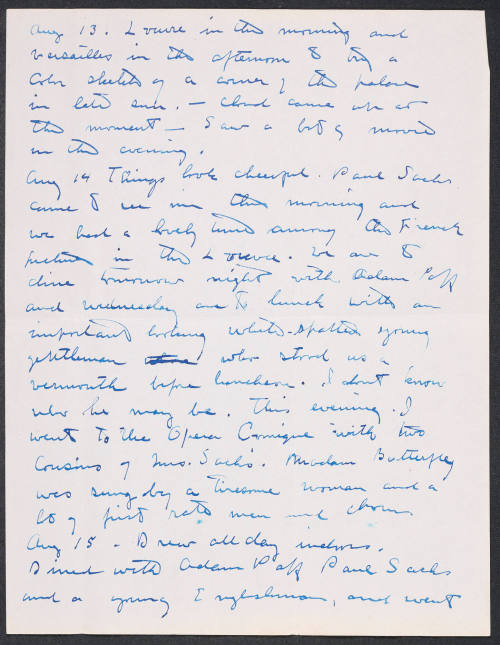 Aug 13. Louvre in the morning and
Versailles in the afternoon to try a
Color sketch of a corner of the palace
in late sun. — Cloud came up at
the moment — Saw a bit of movie
in the evening.
Aug 14 Things look cheerful. Paul Sachs
came to see me this morning and
we had a lovely time among the French
pictures in the Louvre. We are to
dine tomorrow night with Adam Paff
and Wednesday are to lunch with an
important looking white-spatted young
gentleman who stood us a
vermouth before luncheon. I don't know
who he may be. This evening I
went to the Opera Comique with two
Cousins of Mrs. Sachs. Madam Butterfly
was sung by a tiresome woman and a
lot of first rate men and chorus.
Aug 15 - Drew all day indoors.
Dined with Adam Paff Paul Sachs
and a young Englishman, and went